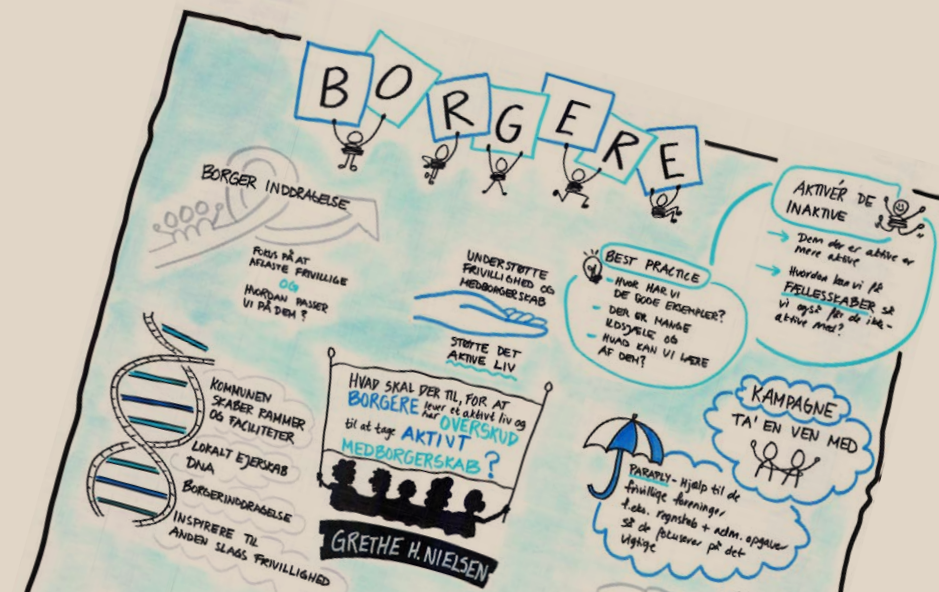 BORGERE
BORGER INDDRAGELSE
FOKUS PÅ AT
AFLASTE FRIVILLIGE
OG
HVORDAN PASSER
VI PÅ DEM?
UNDERSTØTTE
FRIVILLIGHED OG
MEDBORGERSKAB
STØTTE DET
AKTIVE LIV
BEST PRACTICE
- HVOR HAR VI
DE GODE EKSEMPLER?
- DER ER MANGE
ILDSJÆLE OG
- HVAD KAN VI LÆRE
AF DEM?
AKTIVÉR DE
INAKTIVE
→ Dem der er aktive er
mere aktive
→ Hvordan kan vi få
FÆLLESSKABER så
vi også får de ikke-
aktive med?
KOMMUNEN
SKABER RAMMER
OG FACILITETER
LOKALT EJERSKAB
DNA
BORGERINDDRAGELSE
INSPIRERE TIL
ANDEN SLAGS FRIVILLIGHED
HVAD SKAL DER TIL, FOR AT
BORGERE lever et aktivt liv og
har OVERSKUD
til at tage AKTIVT
MEDBORGERSKAB?
GRETHE H. NIELSEN
KAMPAGNE
TA' EN VEN MED
PARAPLY - Hjælp til de
frivillige foreninger
f.eks. regnskab + adm. opgaver
så de fokuserer på det
vigtige